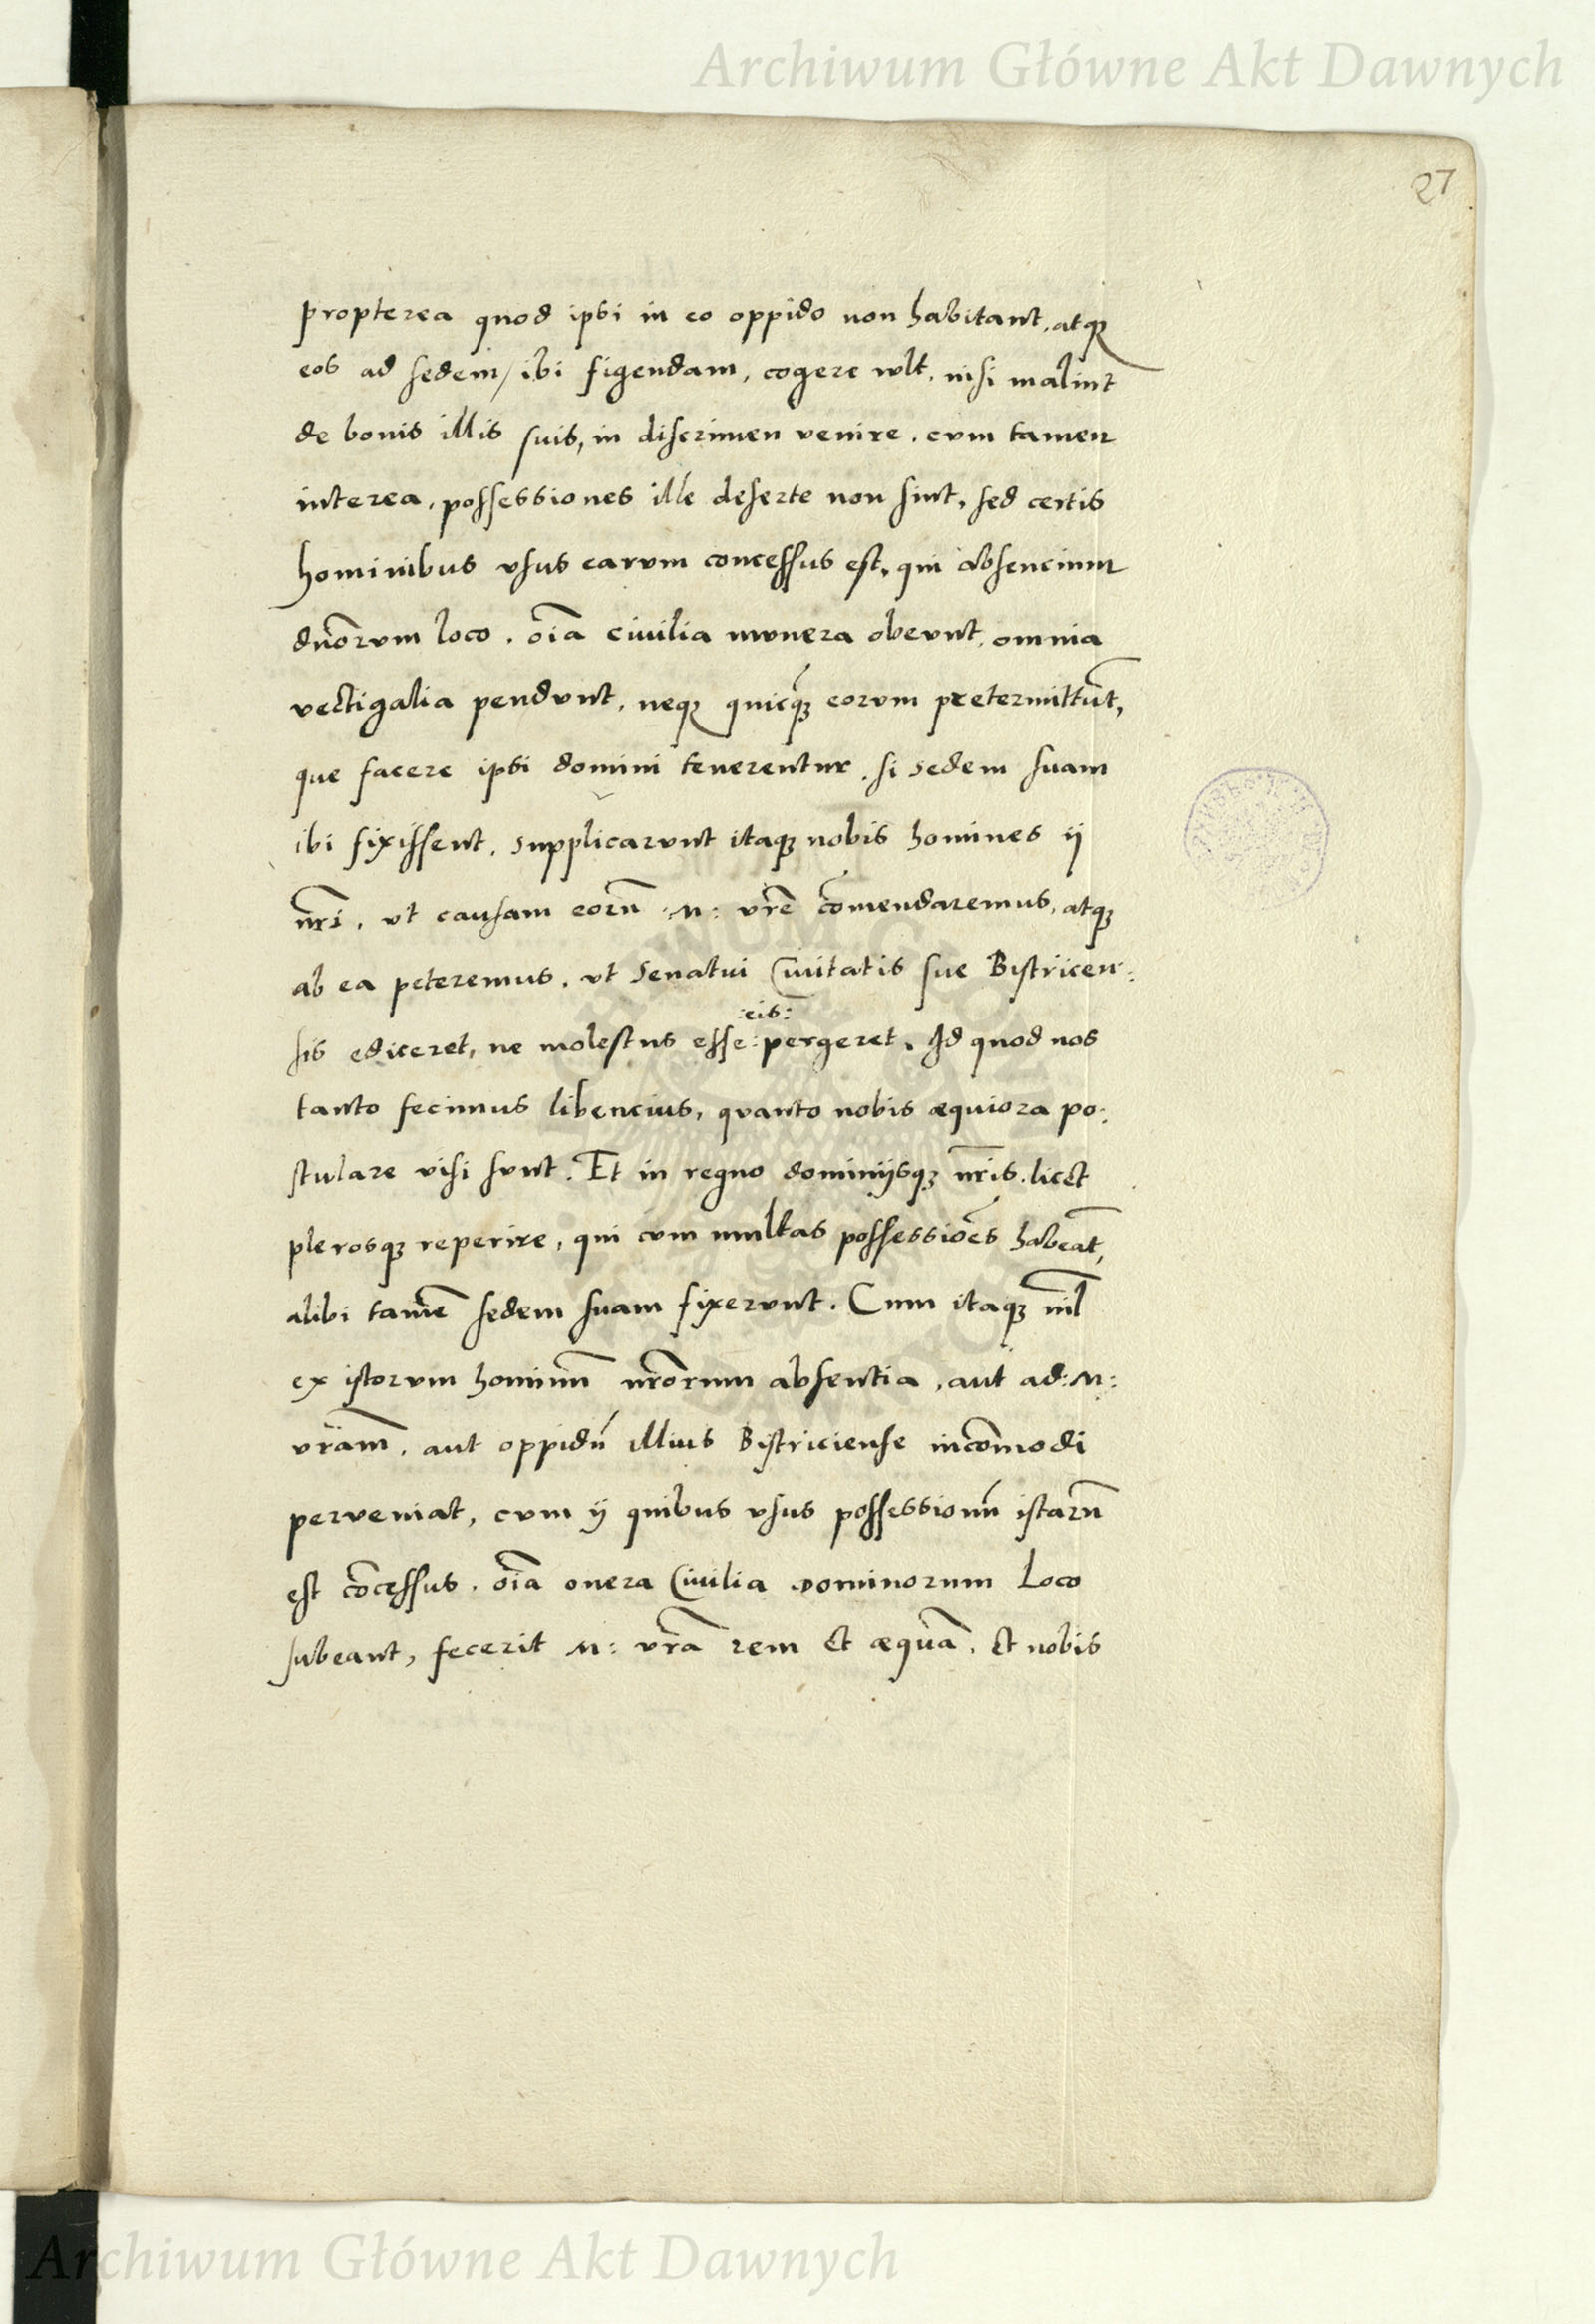 Archiwum Główne Akt Dawnych
27
propterea quod ipsi in eo oppido non habitant, atqꝫ
eos ad sedem/ibi figendam, cogere vult, nisi malint
de bonis illis suis, in discrimen venire. cvm tamen
interea, possessiones ille deserte non sint, sed certis
hominibus vsus earvm concessus est, qui absencium
dn̄orvm loco. oīa ciuilia mvnera obevnt, omnia
vectigalia pendvnt, neqꝫ quicq̄ꝫ eorvm pretermittūt,
que facere ipsi domini tenerentur. si sedem suam
ibi fixissent. supplicarvnt itaqꝫ nobis homines ij
nr̄i. vt causam eorū :M: vr̄e cōmendaremus, atqꝫ
ab ea peteremus. vt Senatui Ciuitatis sue Bistricen:
:eis:
sis ediceret, ne molestus esse: pergeret. Id quod nos
tanto fecimus libencius, qvanto nobis æquiora po:
stulare visi svnt. Et in regno dominijsqꝫ nr̄is. licet
plerosqꝫ reperire, qui cvm multas possessiōes habeāt,
alibi tamē sedem suam fixervnt. Cum itaqꝫ nīl
ex istorvm hominū nr̄orum absentia, aut ad :M:
vr̄am. aut oppidū illius Bistriciense incōmodi
perveniat, cvm ij quibus vsus possessionū istarū
est cōcessus. oīa onera Ciuilia Dominorum Loco
subeant, fecerit M: vr̄a rem et æquā. Et nobis
Archiwum Główne Akt Dawnych